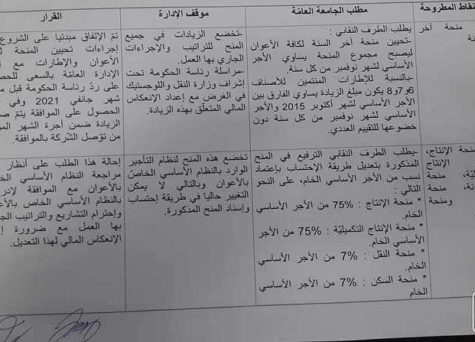 نقاط المطروحة
مطلب الجامعة العامة
موقف الإدارة
القرار
منحة آخر
يطلب الطرف النقابي :
-تحيين منحة آخر السنة لكافة الأعوان
ليصبح مجموع المنحة يساوي الأجر
الأساسي لشهر نوفمبر من كل سنة
-بالنسبة للإطارات المنتمين للأصناف
6و7و8 يكون مبلغ الزيادة يساوي الفارق بين
الأجر الأساسي لشهر أكتوبر 2015 والأجر
الأساسي لشهر نوفمبر من كل سنة دون
خضوعها للتقييم العددي.
-تخضع الزيادات في جميع
المنح للتراتيب والإجراءات
الجاري بها العمل.
-مراسلة رئاسة الحكومة تحت
إشراف وزارة النقل واللوجستيك
في الغرض مع إعداد الإنعكاس
المالي المتعلق بهذه الزيادة.
تم الإتفاق مبدئيا على الشروع
إجراءات تحيين المنحة
الأعوان والإطارات مع
الإدارة العامة بالسعي للحص
على رد رئاسة الحكومة قبل مو
شهر جانفي 2021 وفي
الحصول على الموافقة يتم ص
الزيادة ضمن أجرة الشهر الم
من توصل الشركة بالموافقة.
منحة الإنتاج،
الإنتاج
منحة
ومنحة
-يطلب الطرف النقابي الترفيع في المنح
المذكورة بتعديل طريقة الإحتساب بإعتماد
نسب من الأجر الأساسي الخام، على النحو
التالي :
* منحة الإنتاج : 75% من الأجر الأساسي
الخام.
* منحة الإنتاج التكميلية : 75% من الأجر
الأساسي الخام.
* منحة النقل : 7% من الأجر الأساسي
الخام
* منحة السكن : 7% من الأجر الأساسي
الخام
تخضع هذه المنح لنظام التأجير
الوارد بالنظام الأساسي الخاص
بالأعوان وبالتالي لا يمكن
التغيير حاليا في طريقة إحتساب
وإسناد المنح المذكورة.
إحالة هذا الطلب على أنظار
مراجعة النظام الأساسي الخاص
بالأعوان مع الموافقة لإدر
بالنظام الأساسي الخاص بالأعو
وإحترام التشاريع والتراتيب الج
بها العمل مع ضرورة إ
الإنعكاس المالي لهذا التعديل.